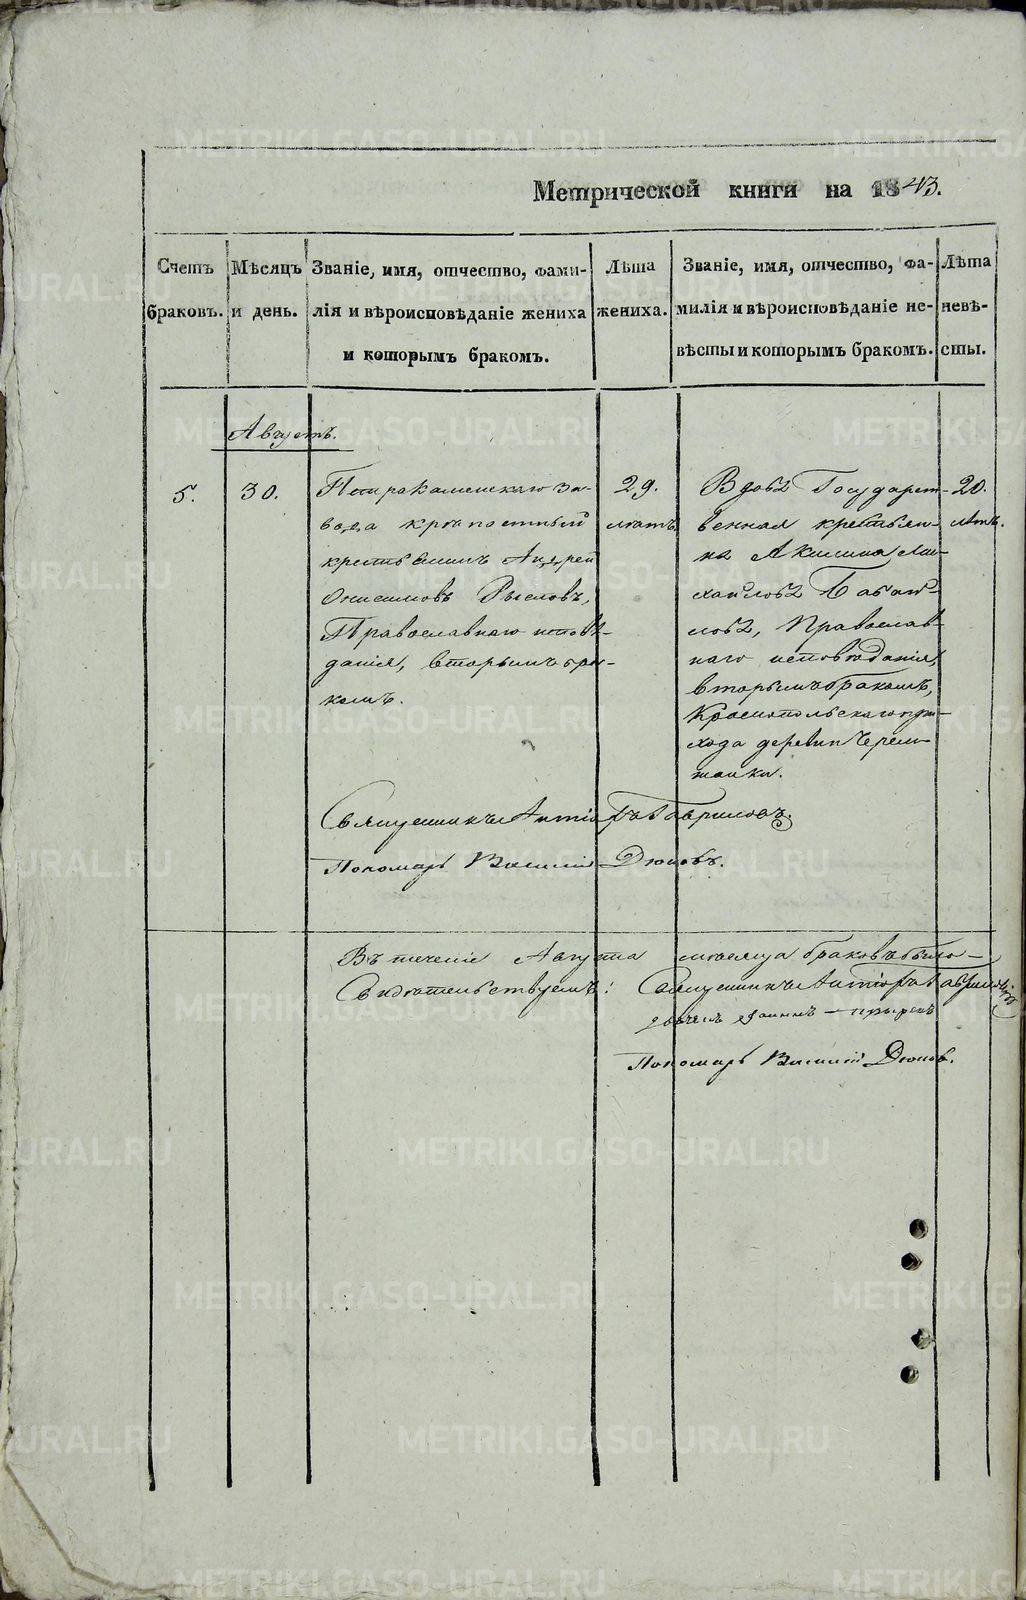 Метрической книги на 1843.
Счетъ браковъ.
Мѣсяцъ и день.
Званіе, имя, отчество, фами-
лія и вѣроисповѣданіе жениха
и которымъ бракомъ.
Лѣта жениха.
Званіе, имя, отчество, фа-
милія и вѣроисповѣданіе не-
вѣсты и которымъ бракомъ.
Лѣта невѣ-
сты.
Августъ.
5.
30.
Петрокаменскаго за-
вода крѣпостный
крестьянинъ Андрей
Онисимовъ Рыловъ,
Православнаго исповѣ-
данія, вторымъ бра-
комъ.
29.
лѣтъ
Вдова Государст-
венная крестьян-
ка Акилина Ми-
хайлова
Православ-
наго исповѣданія,
вторымъ бракомъ,
Краснопольскаго при-
хода деревни Черем-
шанки.
20.
лѣтъ.
Священникъ Гавриловъ.
Пономарь Василій Дюковъ.
Въ теченіе Августа мѣсяца браковъ было —
Свидѣтельствуемъ: Священникъ Гавриловъ
одинъ —
Пономарь Василій Дюковъ.
METRIKI.GASO-URAL.RU